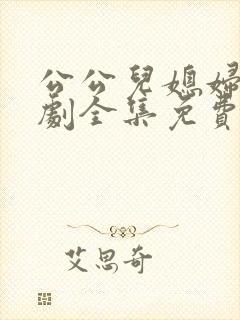 公公兒媳婦
劇全集免費
艾思奇